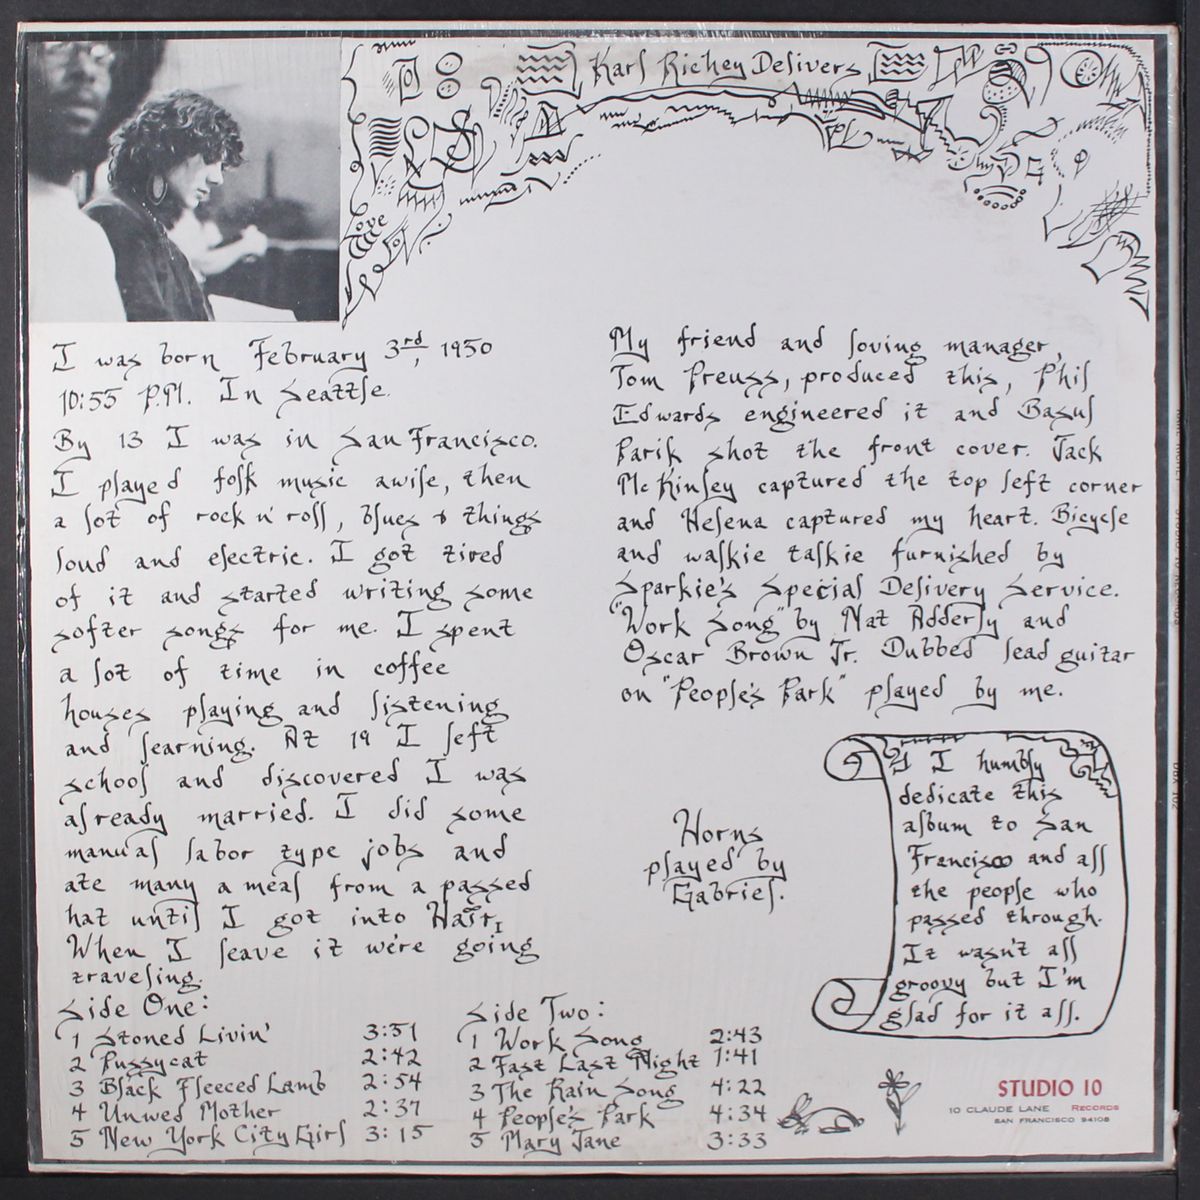 Karl Richey Delivers
Love
I was born February 3rd, 1950
10:55 P.M. In Seattle.
By 13 I was in San Francisco.
I played folk music awile, then
a lot of rock n' roll, blues & things
loud and electric. I got tired
of it and started writing some
softer songs for me. I spent
a lot of time in coffee
houses playing and listening
and learning. At 19 I left
school and discovered I was
already married. I did some
manual labor type jobs and
ate many a meal from a passed
hat until I got into Hair.
When I leave it we're going
traveling.
My friend and loving manager,
Tom Preuss, produced this, Phil
Edwards engineered it and Basul
Parik shot the front cover. Jack
McKinley captured the top left corner
and Helena captured my heart. Bicycle
and walkie talkie furnished by
Sparkie's Special Delivery Service.
"Work Song" by Nat Adderly and
Oscar Brown Jr. Dubbed lead guitar
on "People's Park" played by me.
Horns
played by
Gabriel.
I humbly
dedicate this
album to San
Francisco and all
the people who
passed through.
It wasn't all
groovy but I'm
glad for it all.
Side One:
1 Stoned Livin' 3:51
2 Pussycat 2:42
3 Black Fleeced Lamb 2:54
4 Unwed Mother 2:37
5 New York City Girl 3:15
Side Two:
1 Work Song 2:43
2 Fast Last Night 1:41
3 The Rain Song 4:22
4 People's Park 4:34
5 Mary Jane 3:33
STUDIO 10
10 CLAUDE LANE RECORDS
SAN FRANCISCO 94108